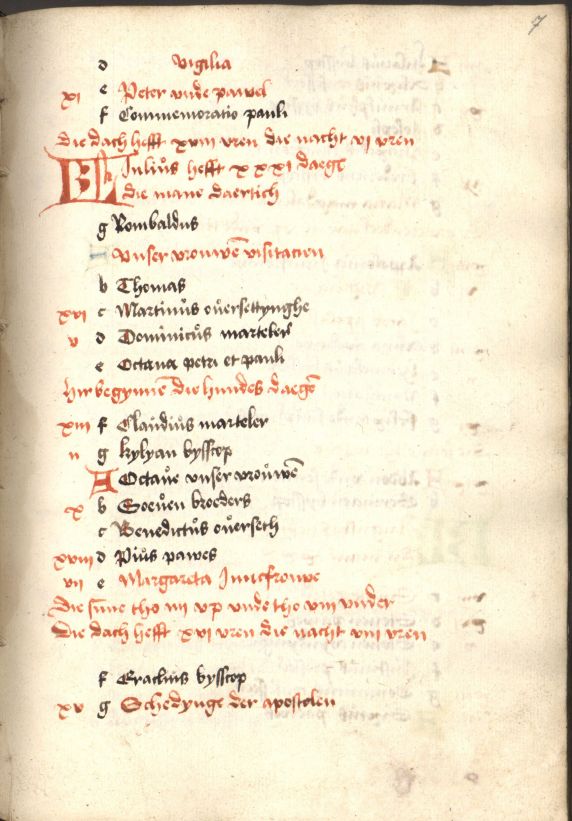 7
d Vigilia
xi e Peter unde pawel
f Commemoratio pauli
Die dach hefft xviii uren die nacht vi uren
KL Julius hefft xxxi daege
die mane daertich
g Rombaldus
Unser vrouwē visitacien
b Thomas
xvi c Martinus oversettynghe
v d Dominicus marteler
e Octava petri et pauli
Hir begynnē die hundes daegē
xiii f Claudius marteler
ii g kylyan bysscop
A Octave unser vrouwē
x b Soeven broeders
c Benedictus overseth
xviii d Pius pawes
vii e Margareta Juncfrouwe
Die sūne tho iiii up unde tho viii under
Die dach hefft xvi uren die nacht viii uren
f Eraclius bysscop
xv g Schedynge der apostolen